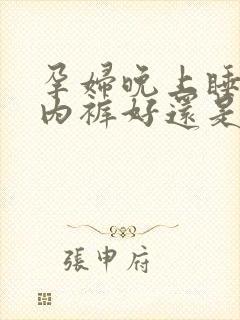 孕婦晚上睡
內褲好還是
張申府